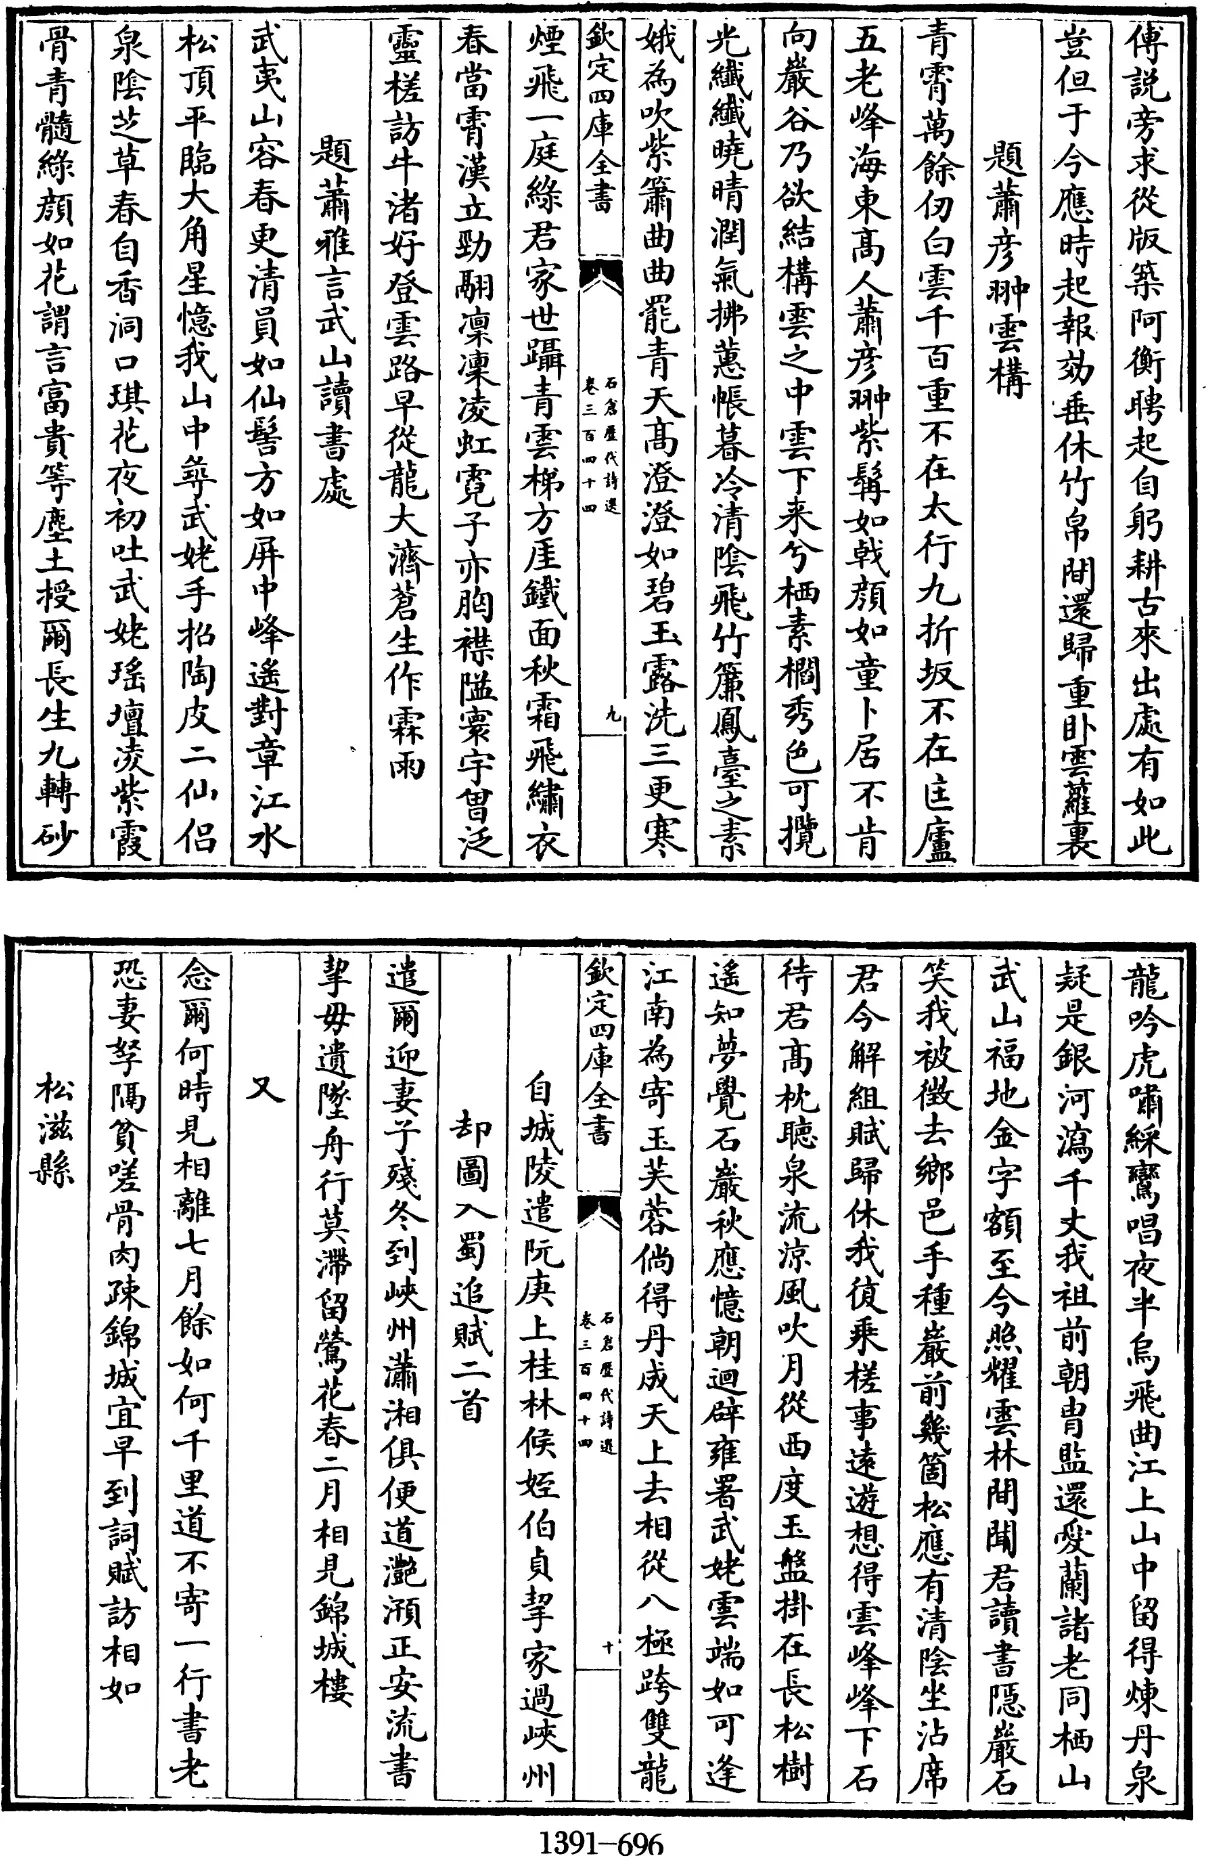 傅説旁求從版築阿衡聘起自躬耕古來出處有如此
豈但于今應時起報効垂休竹帛間還歸重卧雲蘿裏
題蕭彦翀雲構
青霄萬餘仞白雲千百重不在太行九折坂不在匡廬
五老峰海東高人蕭彦翀紫髯如戟顔如童卜居不肯
向巖谷乃欲結構雲之中雲下来兮栖素櫩秀色可攬
光纎纎曉晴潤氣拂蕙帳暮冷清陰飛竹簾鳳臺之素
娥為吹紫簫曲曲罷青天髙澄澄如碧玉露洗三更寒
欽定四庫全書
石倉歷代詩選
卷三百四十四
九
煙飛一庭綠君家世躡青雲梯方厓鐵面秋霜飛繡衣
春當霄漢立勁翮凜凜凌虹霓子亦胸襟隘寰宇曽泛
靈槎訪牛渚好登雲路早從龍大濟蒼生作霖雨
題蕭雅言武山讀書處
武夷山容春更清員如仙髻方如屏中峰遙對章江水
松頂平臨大角星憶我山中尋武姥手招陶皮二仙侣
泉陰芝草春自香洞口琪花夜初吐武姥瑤壇凌紫霞
骨青髓綠顔如花謂言富貴等塵土授爾長生九轉砂
龍吟虎嘯綵鸞唱夜半烏飛曲江上山中留得煉丹泉
疑是銀河瀉千丈我祖前朝胄監還愛蘭諸老同栖山
武山福地金字額至今照耀雲林間聞君讀書隠巖石
笑我被徴去鄉邑手種巖前幾箇松應有清陰坐沾席
君今解組賦歸休我復乘槎事遠遊想得雲峰峰下石
待君高枕聽泉流涼風吹月從西度玉盤掛在長松樹
遥知夢覺石巖秋應憶朝迴辟雍署武姥雲端如可逢
江南為寄玉芙蓉倘得丹成天上去相從八極跨雙龍
欽定四庫全書
石倉歷代詩選
卷三百四十四
十
自城陵遣阮庚上桂林候姪伯貞挈家過峽州
却圖入蜀追賦二首
遣爾迎妻子殘冬到峽州瀟湘俱便道灔澦正安流書
挈毋遺墜舟行莫滯留鶯花春二月相見錦城樓
又
念爾何時見相離七月餘如何千里道不寄一行書老
恐妻孥隔貧嗟骨肉疎錦城宜早到詞賦訪相如
松滋縣
1391-696